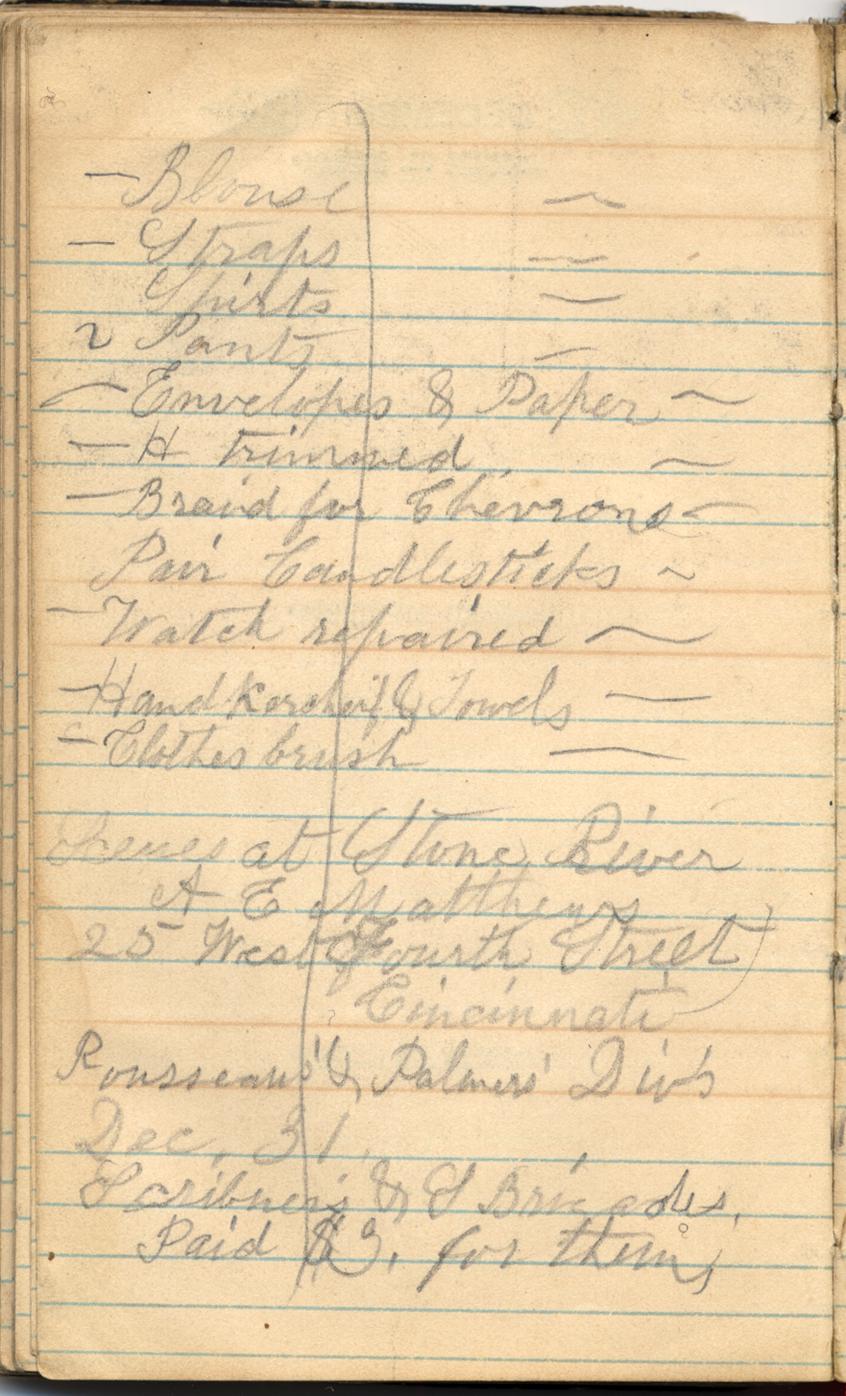 — Blouse —
— Straps —
Shirts —
2 Pants —
— Envelopes & Paper —
— H trimmed —
— Braid for Chevrons —
Pair Candlesticks —
— Watch repaired —
— Handkercheif & Towels —
— Clothes brush —
Scenes at Stone River
A E Matthews
25 West Fourth Street
Cincinnati
Rousseau's & Palmers' Div's
Dec. 31.
Scribner's & S Brigades.
Paid $3. for them,